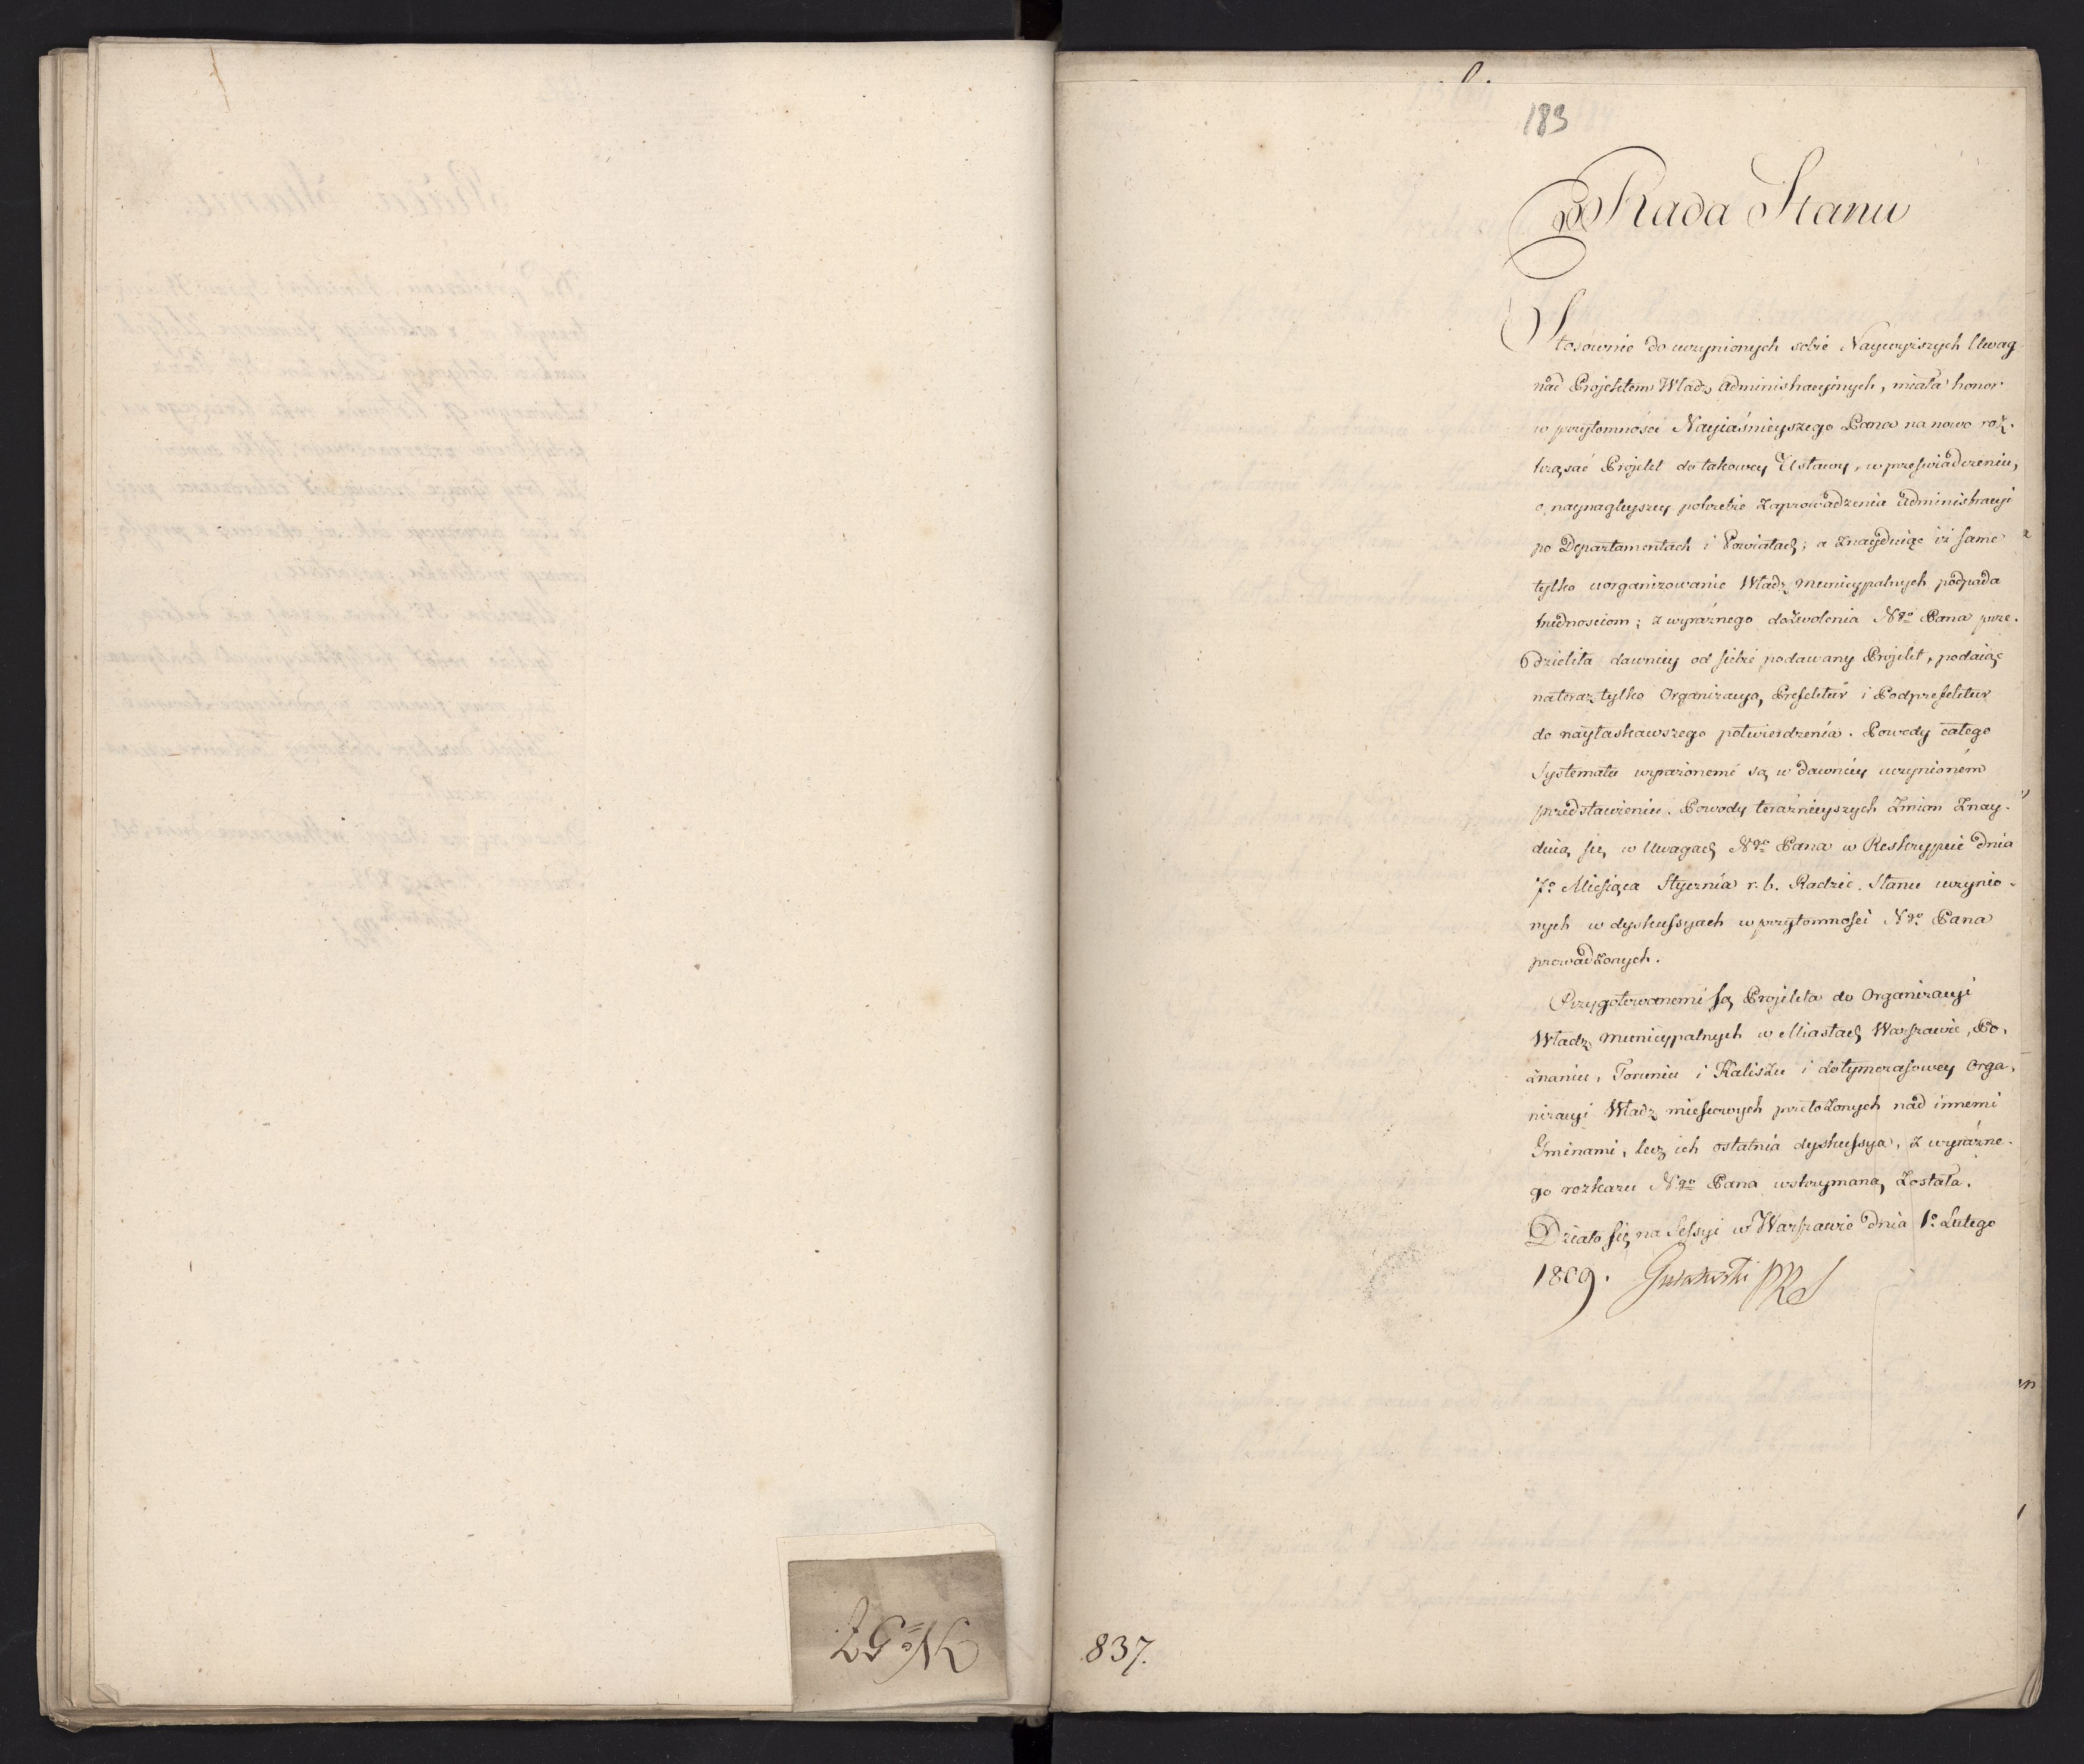 183
Rada Stanu
Stosownie do uczynionych sobie Naywyższych Uwag
nad Projektem Władz administracyinych, miała honor
w przytomności Nayiaśnieyszego Pana na nowo roz-
trząsać Projekt do takowey Ustawy, w przeświadczeniu,
o naynagleyszey potrzebie zaprowadzenia administracyi
po Departamentach i Powiatach; a znayduiąc iż same
tylko uorganizowanie Władz municypalnych podpada
trudnosciom; z wyraźnego dozwolenia Ngo Pana prze-
dzieliła dawniey od siebie podawany Projekt, podaiąc
na teraz tylko Organizacyą Prefektur i Podprefektur
do nayłaskawszego potwierdzenia. Powody całego
Systematu wyrażonemi są w dawniey uczynionem
przedstawieniu. Powody teraźnieyszych zmian znay-
duią się w Uwagach Ngo Pana w Reskrypcie dnia
7o Miesiąca Stycznia r. b. Radzie Stanu uczynio-
nych w dyskussyach w przytomności Ngo Pana
prowadzonych.
Przygotowanemi są Projekta do Organizacyi
Władz municypalnych w Miastach Warszawie, Po-
znaniu, Toruniu i Kaliszu i dotymczasowey Orga-
nizacyi Władz mieyscowych przełożonych nad innemi
Gminami, lecz ich ostatnia dyskussya, z wyraźne-
go rozkazu Ngo Pana wstrzymaną została.
Działo się na Sessyi w Warszawie dnia 1o Lutego
1809. Gutakowski PRS
No 57
837.